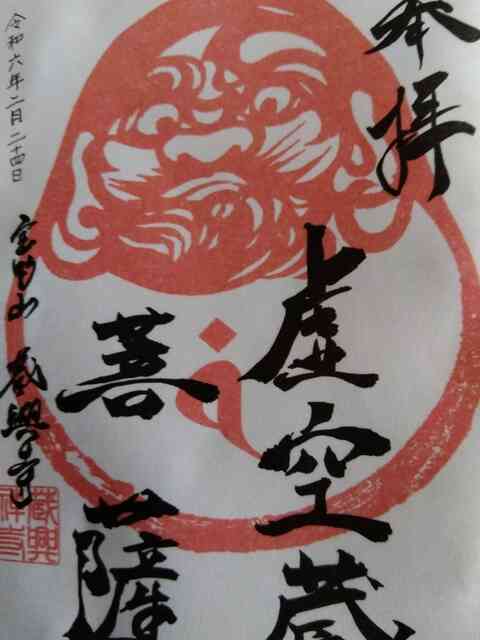 奉拝
虚空蔵
菩薩
令和六年二月二十四日
宝田山 蔵興寺
蔵興
禅寺